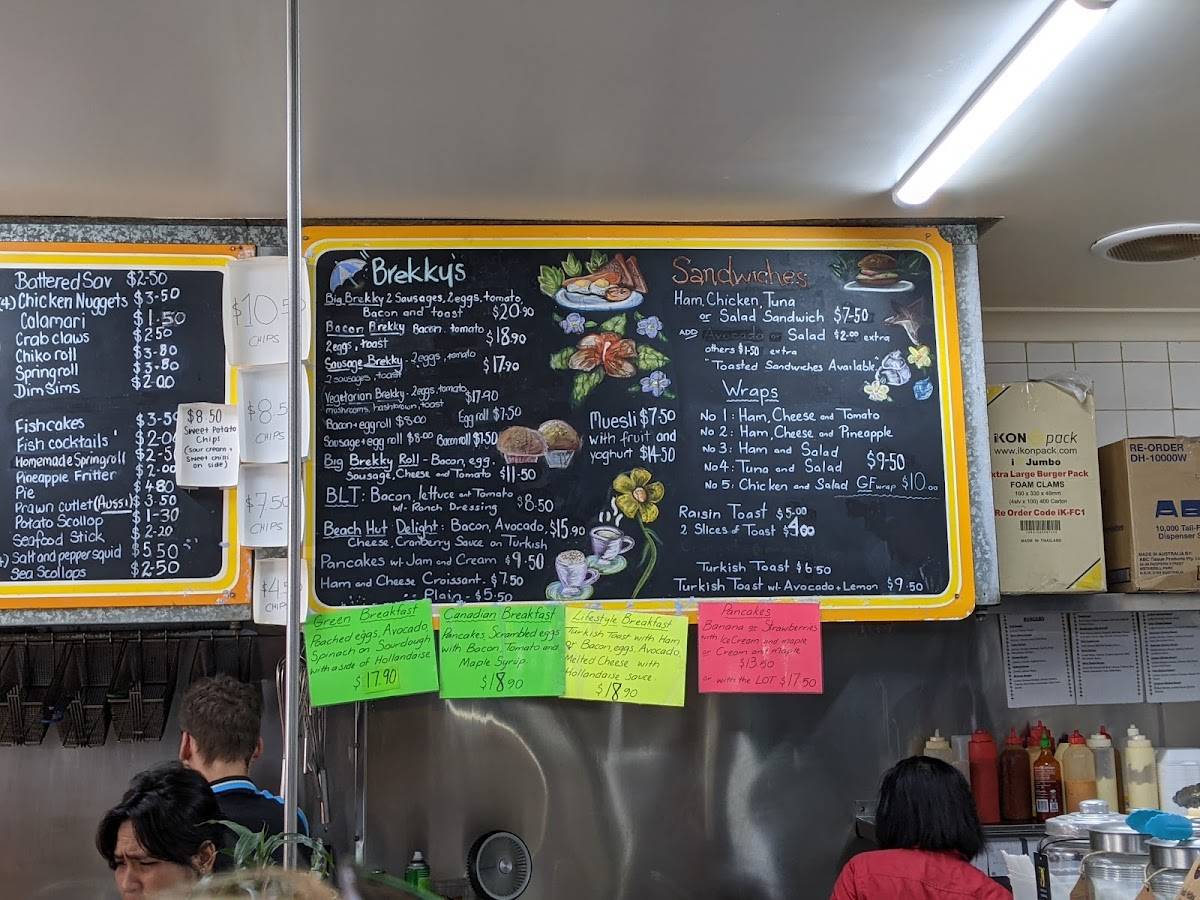 Battered Sav $2.50
(4) Chicken Nuggets $3.50
Calamari $1.50
Crab claws $2.50
Chiko roll $3.80
Springroll $3.80
Dim Sims $2.00
Fishcakes $3.50
Fish cocktails $2.00
Homemade Springroll
Pineapple Fritter $2.00
Pie $4.80
Prawn cutlet (Aussi) $3.50
Potato Scallop $1.30
Seafood Stick $2.20
Salt and pepper squid $5.50
Sea Scallops $2.50
$10.50
CHIPS
$8.5
CHIPS
$7.50
CHIPS
$4.5
CHIP
$8.50
Sweet Potato
Chips
(sour cream +
sweet chilli
on side)
Brekky's
Big Brekky 2 Sausages, 2 eggs, tomato,
Bacon and toast $20.90
Bacon Brekky Bacon, tomato
2 eggs, toast $18.90
Sausage Brekky - 2 eggs, tomato
2 sausages, toast $17.90
Vegetarian Brekky - 2 eggs, tomato
mushrooms, hashbrown, toast $17.90
Bacon + egg roll $8.00 Egg roll $7.50
Sausage + egg roll $8.00 Bacon roll $7.50
Big Brekky Roll - Bacon, egg,
Sausage, Cheese and Tomato $11.50
BLT: Bacon, lettuce and Tomato
w/- Ranch Dressing $8.50
Beach Hut Delight: Bacon, Avocado,
Cheese, Cranberry Sauce on Turkish $15.90
Pancakes w/- Jam and Cream $9.50
Ham and Cheese Croissant - $7.50
Plain - $5.50
Muesli $7.50
with fruit and
yoghurt $14.50
Sandwiches
Ham, Chicken, Tuna
or Salad Sandwich $7.50
ADD Avocado or Salad $2.00 extra
others $1.50 extra
"Toasted Sandwiches Available"
Wraps
No 1: Ham, Cheese and Tomato
No 2: Ham, Cheese and Pineapple
No 3: Ham and Salad
No 4: Tuna and Salad $9.50
No 5: Chicken and Salad GF wrap $10.00
Raisin Toast $5.00
2 Slices of Toast $4.00
Turkish Toast $6.50
Turkish Toast w/- Avocado + Lemon $9.50
Green Breakfast
Poached eggs, Avocado,
Spinach on Sourdough
with a side of Hollandaise
$17.90
Canadian Breakfast
Pancakes, Scrambled eggs
with Bacon, Tomato and
Maple Syrup
$18.90
Lifestyle Breakfast
Turkish Toast with Ham
or Bacon, eggs, Avocado,
Melted Cheese with
Hollandaise sauce.
$18.90
Pancakes
Banana or Strawberries
with Ice Cream and maple
or Cream and maple
$13.50
or with the LOT $17.50
iKON pack
www.ikonpack.com
i Jumbo
Extra Large Burger Pack
FOAM CLAMS
Re Order Code iK-FC1
MADE IN THAILAND
RE-ORDER
DH-10000W
10,000 Tall-F
Dispenser S
MADE IN AUSTRALIA BY: